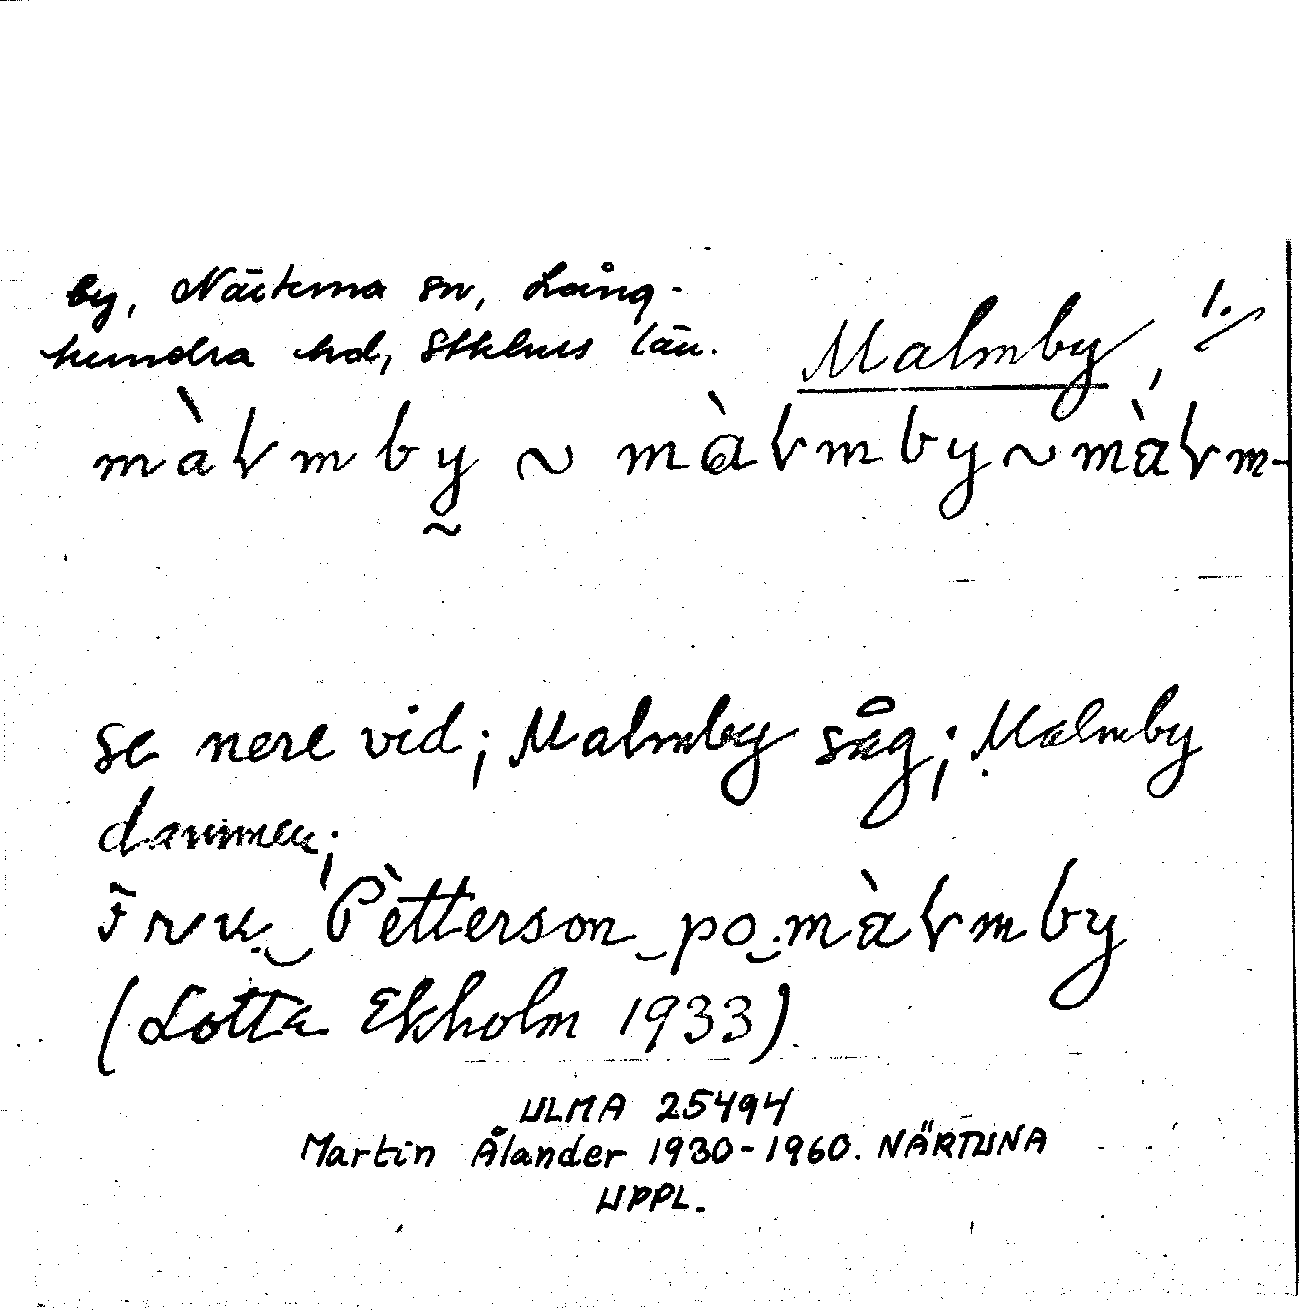 by, Närtuna sn, Lång-
hundra hd, Stklms län.
Malmby, 1.
màlmby ~ màlmby ~ màlm-
se nere vid; Malmby såg; Malmby
dammen;
Fru Pètterson po màlmby
(Lotta Ekholm 1933)
ULMA 25494
Martin Ålander 1930-1960. NÄRTUNA
UPPL.